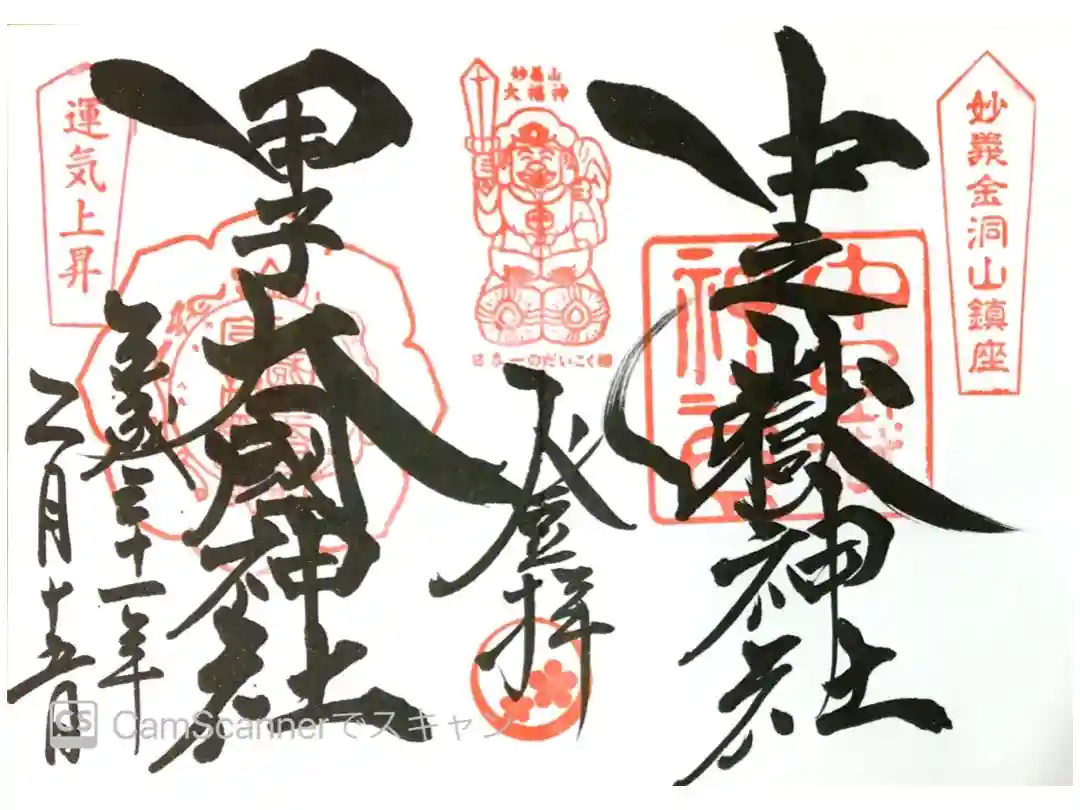 妙義金洞山鎮座
中之嶽神社
妙義山
大福神
日本一のだいこく様
登拝
運気上昇
甲子大國神社
平成三十一年
二月十五日
CamScannerでスキャン